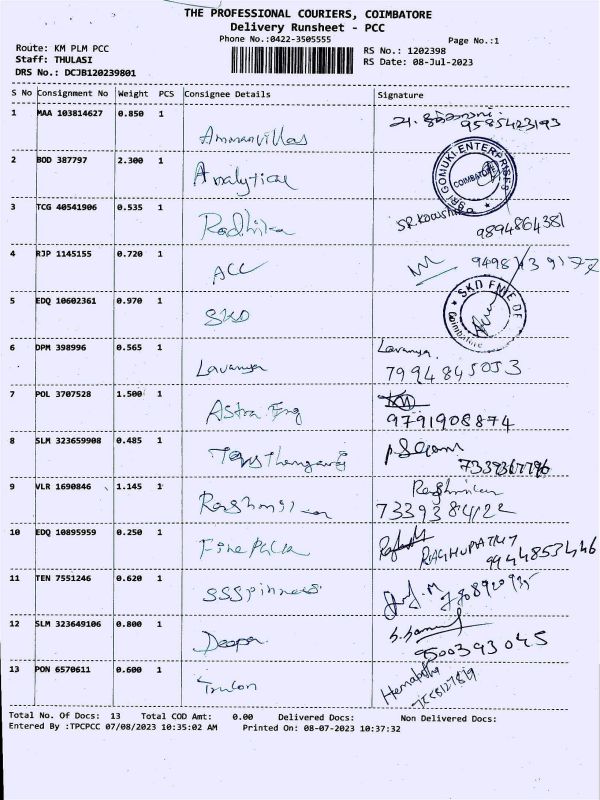 THE PROFESSIONAL COURIERS, COIMBATORE
Delivery Runsheet - PCC
Phone No.:0422-3505555
Page No.:1
Route: KM PLM PCC
Staff: THULASI
DRS No.: DCJB120239801
RS No.: 1202398
RS Date: 08-Jul-2023
S No Consignment No Weight PCS Consignee Details Signature
1 MAA 103814627 0.850 1
9585423193
Ammanvillas
2 BOD 387797 2.300 1
Analytical
SRI GOMUKI ENTERPRISES
COIMBATORE
3 TCG 40541906 0.535 1
Radhika
9894864381
4 RJP 1145155 0.720 1
ACC
5 EDQ 10602361 0.970 1
SKD
SKD
Coimbatore
6 DPM 398996 0.565 1
Lavanya
Lavanya
7994845053
7 POL 3707528 1.500 1
Astra Eng
9791908874
8 SLM 323659908 0.485 1
9 VLR 1690846 1.145 1
10 EDQ 10895959 0.250 1
Fine Pack
11 TEN 7551246 0.620 1
SSSpinners
12 SLM 323649106 0.800 1
Deepa
9500393045
13 PON 6570611 0.600 1
Total No. Of Docs: 13 Total COD Amt: 0.00 Delivered Docs: Non Delivered Docs:
Entered By :TPCPCC 07/08/2023 10:35:02 AM Printed On: 08-07-2023 10:37:32